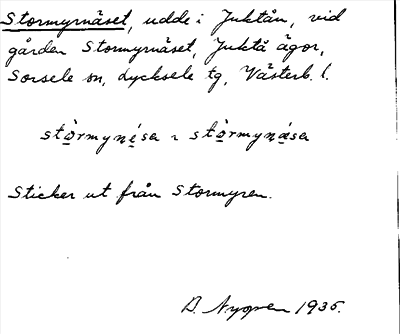 Stormyrnäset, udde i Juktån, vid
gården Stormyrnäset, Juktå ägor,
Sorsele sn, Lycksele tg, Västerb. l.
stòrmynésa ~ stòrmynäsa
Sticker ut från Stormyren.
D. Nygren 1935.